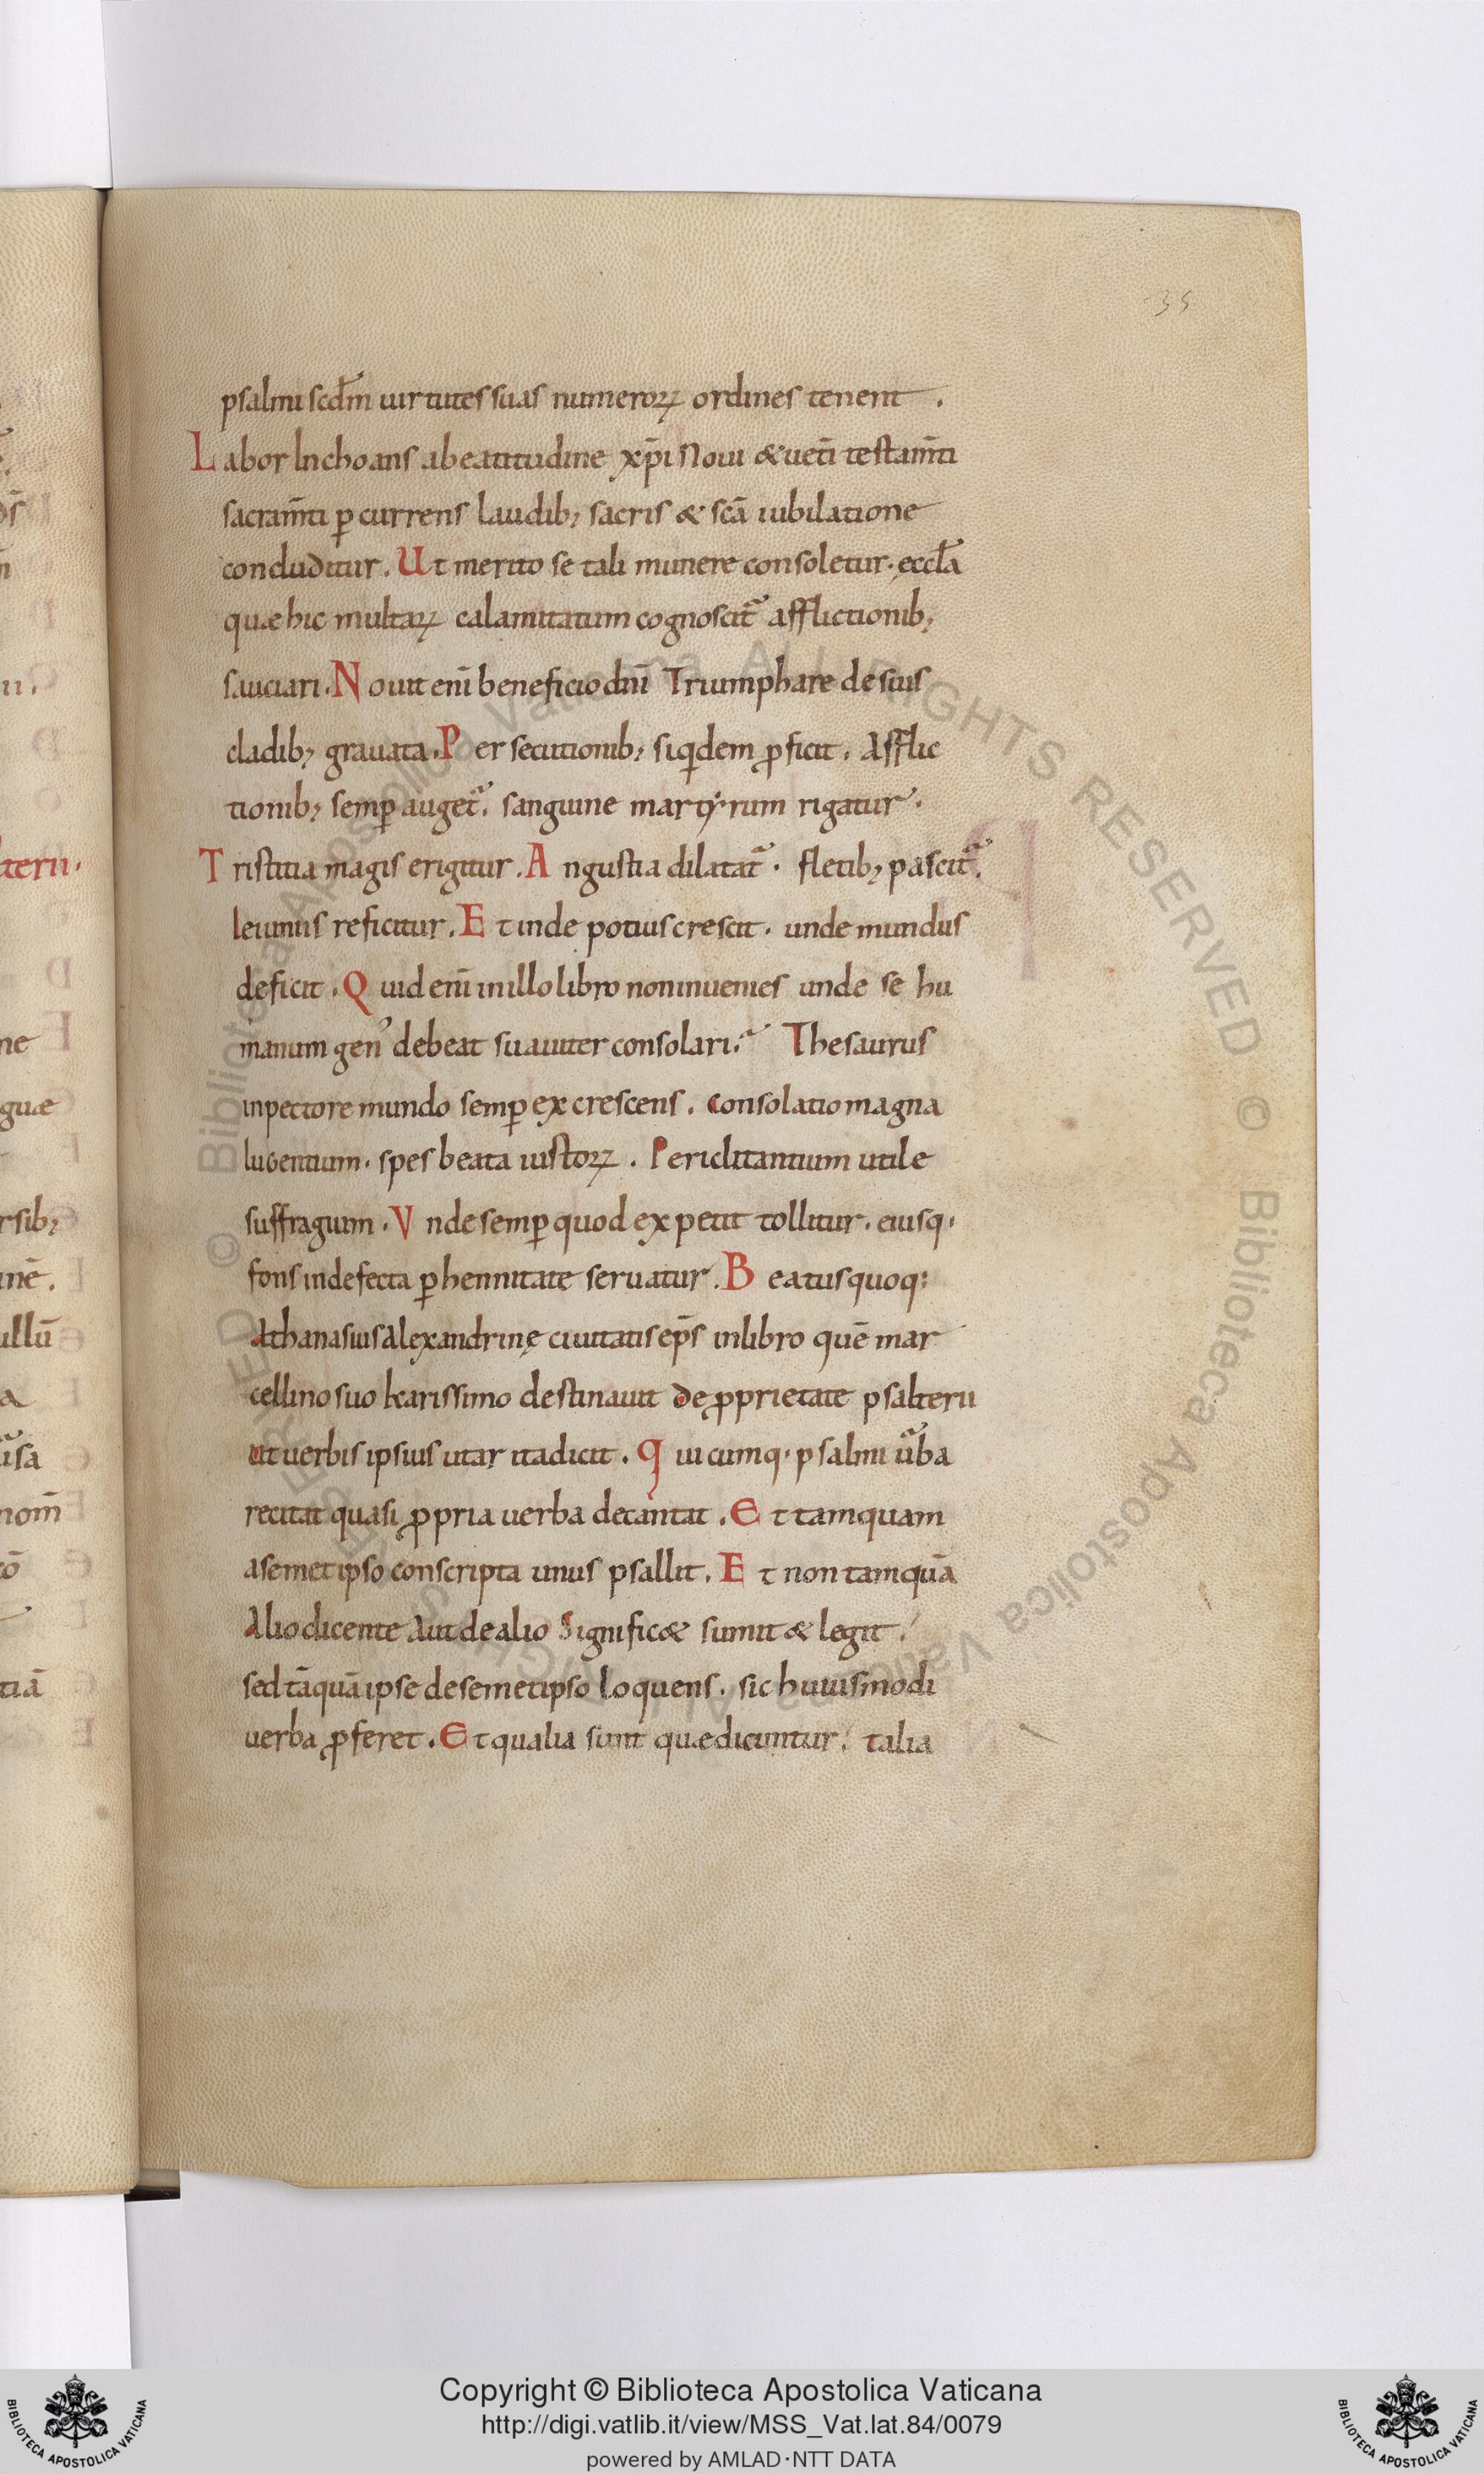 35
psalmi scd̄m uirtutes suas numeroꝝ ordines tenent .
Labor Inchoans abeatitudine xp̄i Noui & uet̄i testam̄ti
sacram̄ti ꝑcurrens laudib; sacris & sc̄a iubilatione
concluditur. Ut merito se tali munere consoletur. ęccl̄a
quæ hic multaꝝ calamitatum cognoscit᷑ afflictionib;
sauciari. Nouit eni̅ beneficio dn̄i Triumphare de suis
cladib; grauata. Persecutionib; siqͥdem ꝓficit. Afflic
tionib; semꝑ auget᷑. sanguine martẏrum rigatur.
Tristitia magis erigitur. Angustia dilatat᷑. fletib; pascit᷑.
Ieiuniis reficitur. Et inde potius crescit. unde mundus
deficit. Quid eni̅ in illo libro non inuenies unde se hu
manum genꝰ debeat suauiter consolari. Thesaurus
inpectore mundo semꝑ excrescens. consolatio magna
lugentium. spes beata iustoꝝ. Periclitantium utile
suffragium. Vnde semꝑ quod expetit tollitur. eiusq;
fons indefecta ꝑhennitate seruatur. Beatus quoq;
Athanasius Alexandrinę ciuitatis ep̄s inlibro quē mar
cellino suo karissimo destinauit de ꝓprietate psalterii
ut uerbis ipsius utar ita dicit. Quicumq; psalmi u᷑ba
recitat quasi ꝓpria uerba decantat. Et tamquam
asemetipso conscripta unus psallit. Et non tamquā
Alio dicente Aut de alio Signific& sumit & legit.
sed tāquā ipse de semetipso loquens. sic huiusmodi
uerba ꝓferet. Et qualia sunt quæ dicuntur. talia
terii.
ne
guæ
rsib;
nē.
ullū
a
nom̄
tiā
© Biblioteca Apostolica Vaticana ALL RIGHTS RESERVED © Biblioteca Apostolica Vaticana ALL RIGHTS RESERVED
BIBLIOTECA APOSTOLICA VATICANA
Copyright © Biblioteca Apostolica Vaticana
http://digi.vatlib.it/view/MSS_Vat.lat.84/0079
powered by AMLAD·NTT DATA
BIBLIOTECA APOSTOLICA VATICANA